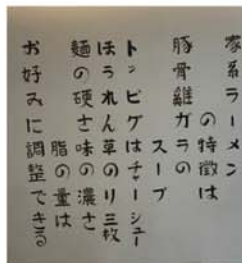 家系ラーメン
の特徴は
豚骨雞ガラの
スープ
トッピグはチャーシュー
ほうれん草のり三枚
麺の硬さ味の濃さ
脂の量は
お好みに調整できる